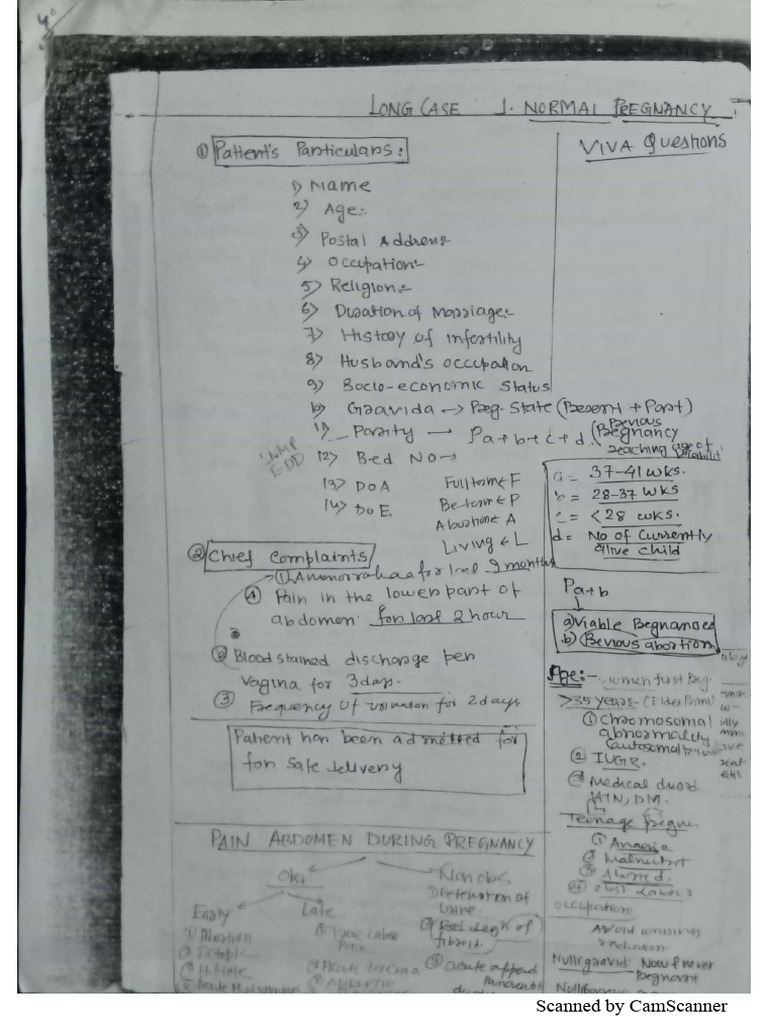 LONG CASE 1. NORMAL PREGNANCY
① Patient's Particulars:
1) Name
2) Age:-
3) Postal Address:-
4) Occupation:-
5) Religion:-
6) Duration of Marriage:-
7) History of infertility
8) Husband's occupation
9) Socio-economic Status
10) Gravida → Preg. State (Present + Past)
11) Parity → Pa+b+c+d. (Previous Pregnancy reaching age of viability
LMP
EDD
12) Bed No →
13) DOA
14) DOE
Full term ← F
Preterm ← P
Abortion ← A
Living ← L
② Chief Complaints
① Amenorrahaa for last 9 months
④ Pain in the lower part of
abdomen for last 2 hour
② Blood stained discharge per
vagina for 3 days.
③ Frequency of urination for 2 days
Patient has been admitted for
for safe delivery
PAIN ABDOMEN DURING PREGNANCY
Obst
Early
1) Abortion
② Ectopic
③ H. Mole
Late
① True Labor
Pain
Non obs
① Retention of
urine.
② Red degn of
fibroid.
③ Acute append
VIVA Questions
a = 37-41 wks.
b = 28-37 wks
c = <28 wks.
d = No of Currently
alive child
Pa+b
a) Viable Pregnancies
b) Previous abortion
Age:- women first preg
>35 years - (Elder Primi)
① Chromosomal
abnormality
② IUGR.
③ Medical
HTN, DM.
Teenage Pregn.
① Anaemia
② Malnutrit
③
④ Obst Labour
occupation
Avoid
radiation
Nulligravid: Now & never
Pregnant